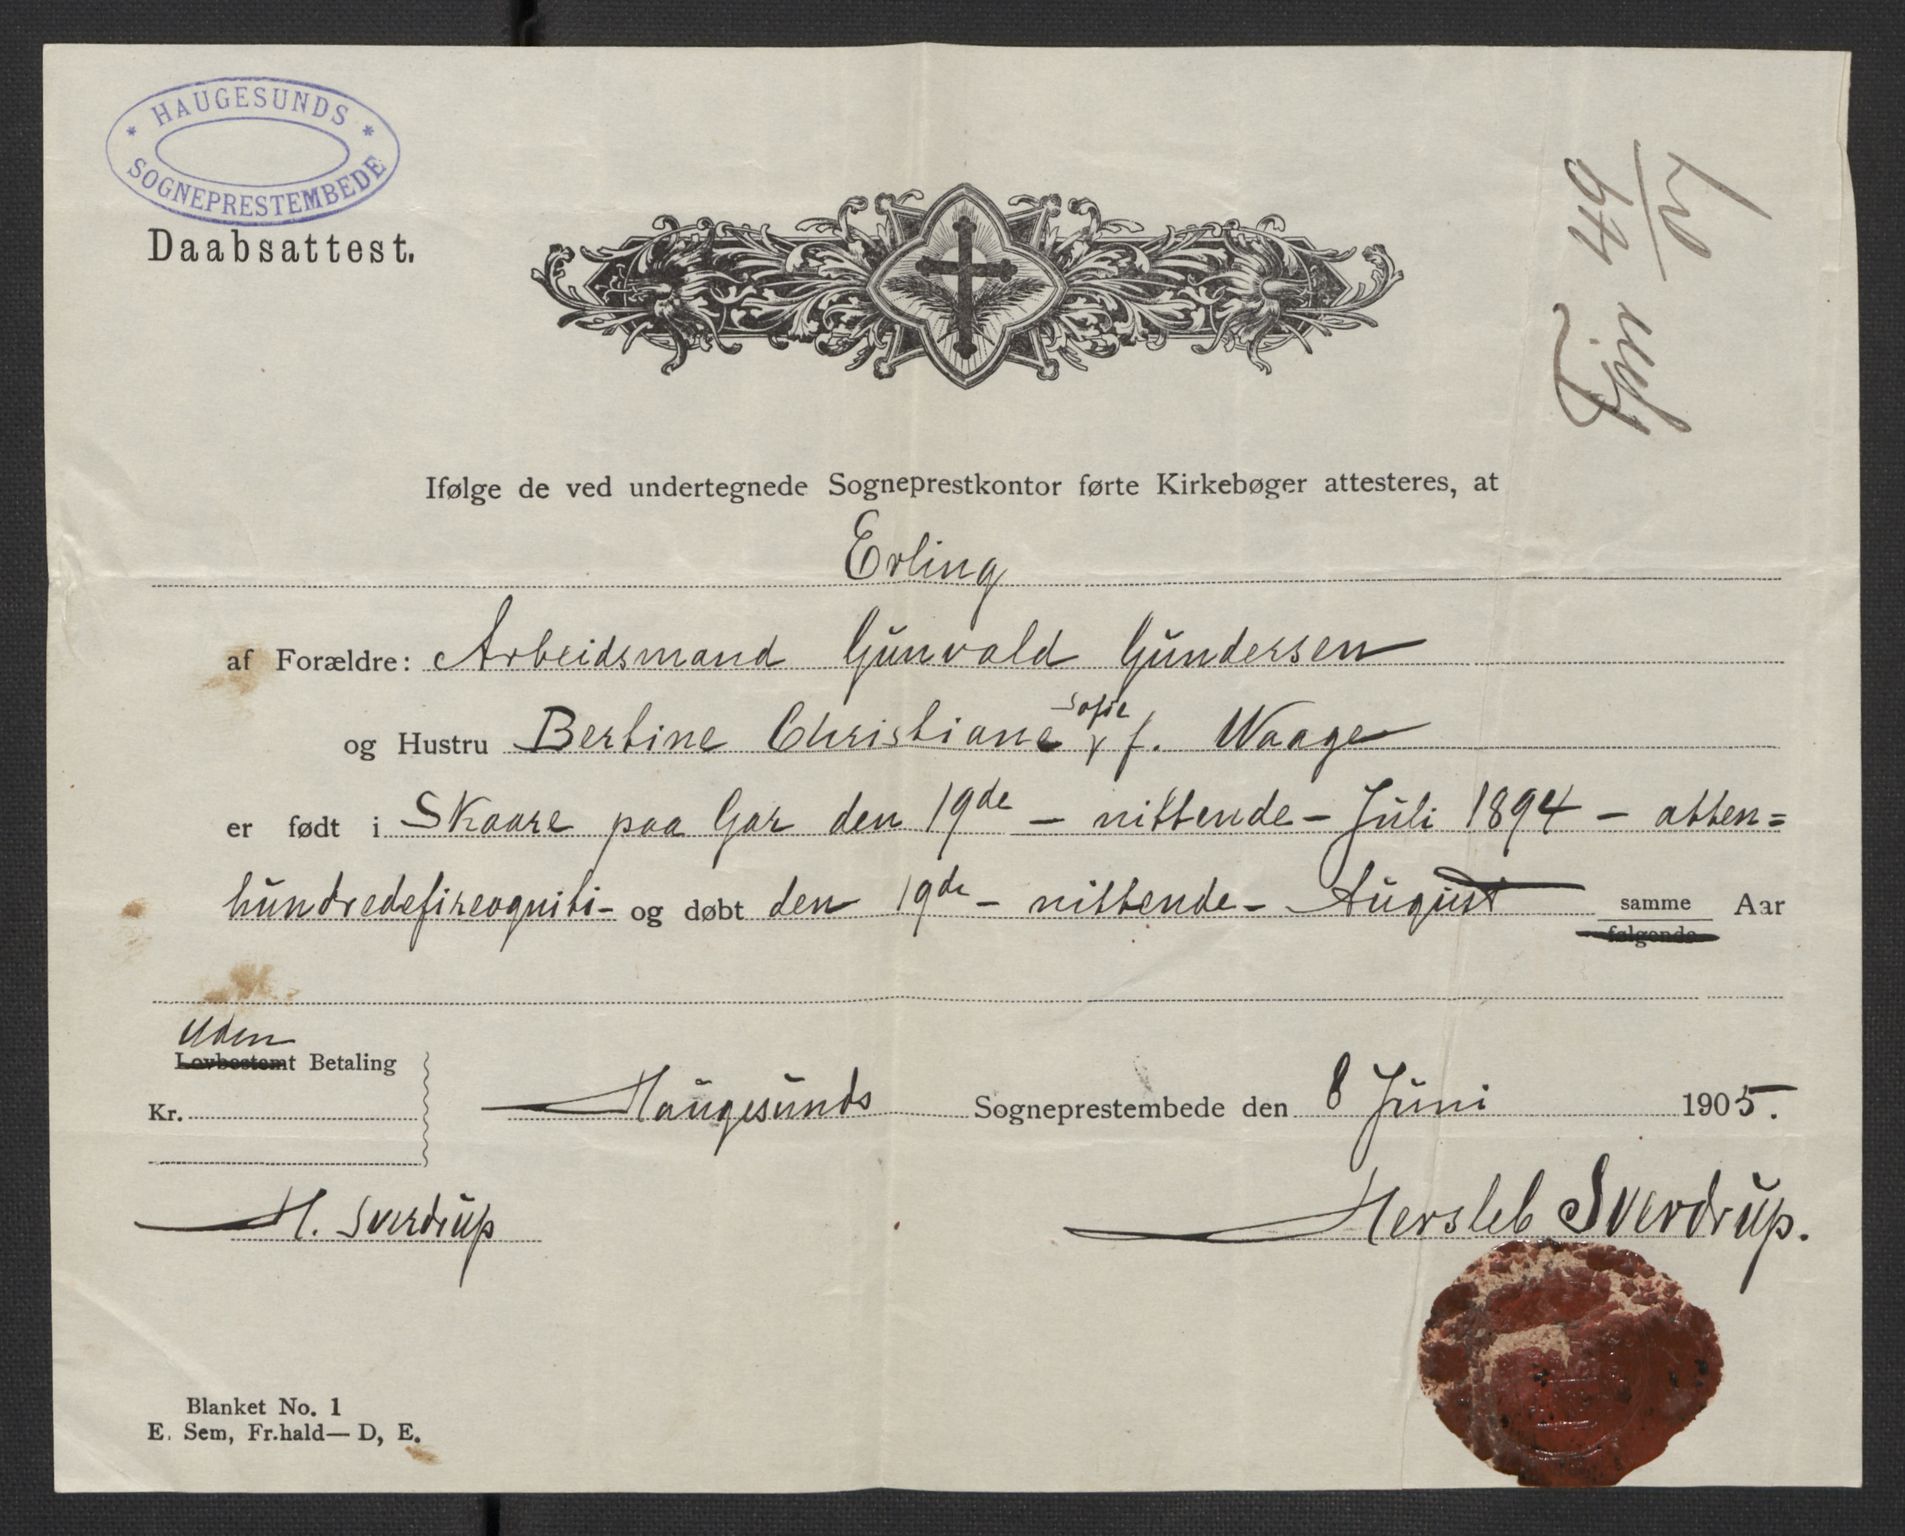 HAUGESUNDS
SOGNEPRESTEMBEDE
Daabsattest.
Ifølge de ved undertegnede Sogneprestkontor førte Kirkebøger attesteres, at
Erling
af Forældre: Arbeidsmand Gunvald Gundersen
og Hustru Bertine Christiane Sofie f. Waage
er født i Skaare paa Gar den 19de – nittende – Juli 1894 – atten=
hundredefireogniti – og døbt den 19de – nittende – August samme Aar
følgende
Uden
Lovbestemt Betaling
Kr.
Haugesunds Sogneprestembede den 8 Juni 1905.
H. Sverdrup
Hersleb Sverdrup.
Blanket No. 1
E. Sem, Fr.hald— D, E.